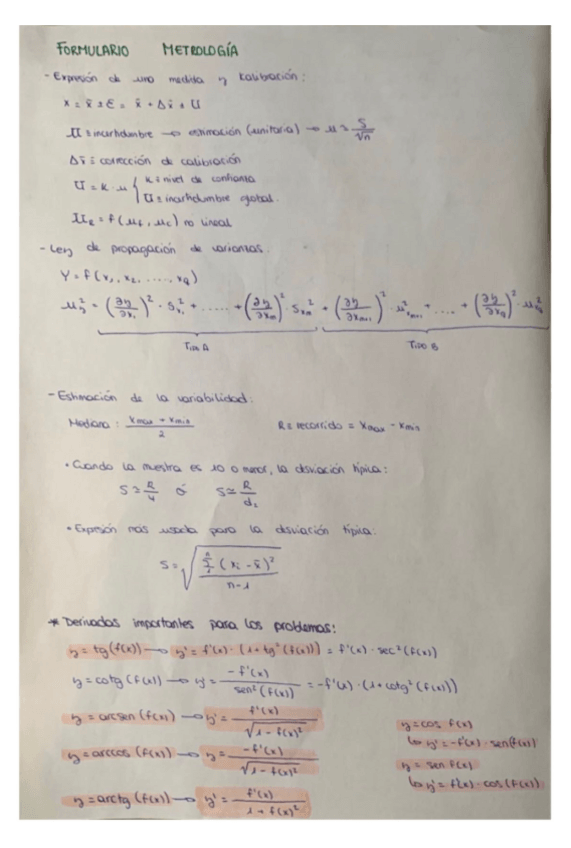 FORMULARIO METROLOGÍA
- Expresión de una medida y kalibración:
x = x̄ ± ε = x̄ + Δx̄ ± U
U ≡ incertidumbre → estimación (unitaria) → u = S/√n
Δx̄ ≡ corrección de calibración
U = k · u { k ≡ nivel de confianza
U ≡ incertidumbre global.
U_E = f(u_f, u_c) no lineal
- Ley de propagación de varianzas.
Y = f(x₁, x₂, ...., x_q)
u_y² = (∂y/∂x₁)² · S_x₁² + ...... + (∂y/∂x_m)² · S_xm² + (∂y/∂x_m+1)² · u²_xm+1 + .... + (∂y/∂x_q)² · u²_xq
TIPO A TIPO B
- Estimación de la variabilidad:
Mediana: (x_max + x_min)/2 R ≡ recorrido = x_max - x_min
• Cuando la muestra es 10 o menor, la desviación típica:
S ≃ R/4 ó S ≃ R/d₂
• Expresión más usada para la desviación típica:
S = √(Σ₁ⁿ (x_i - x̄)² / (n-1))
* Derivadas importantes para los problemas:
y = tg(f(x)) → y' = f'(x) · (1 + tg²(f(x))) = f'(x) · sec²(f(x))
y = cotg(f(x)) → y' = -f'(x)/sen²(f(x)) = -f'(x) · (1 + cotg²(f(x)))
y = arcsen(f(x)) → y' = f'(x)/√(1 - f(x)²)
y = cos f(x)
↳ y' = -f'(x) · sen(f(x))
y = arccos(f(x)) → y = -f'(x)/√(1 - f(x)²)
y = sen f(x)
↳ y' = f'(x) · cos(f(x))
y = arctg(f(x)) → y' = f'(x)/(1 + f(x)²)